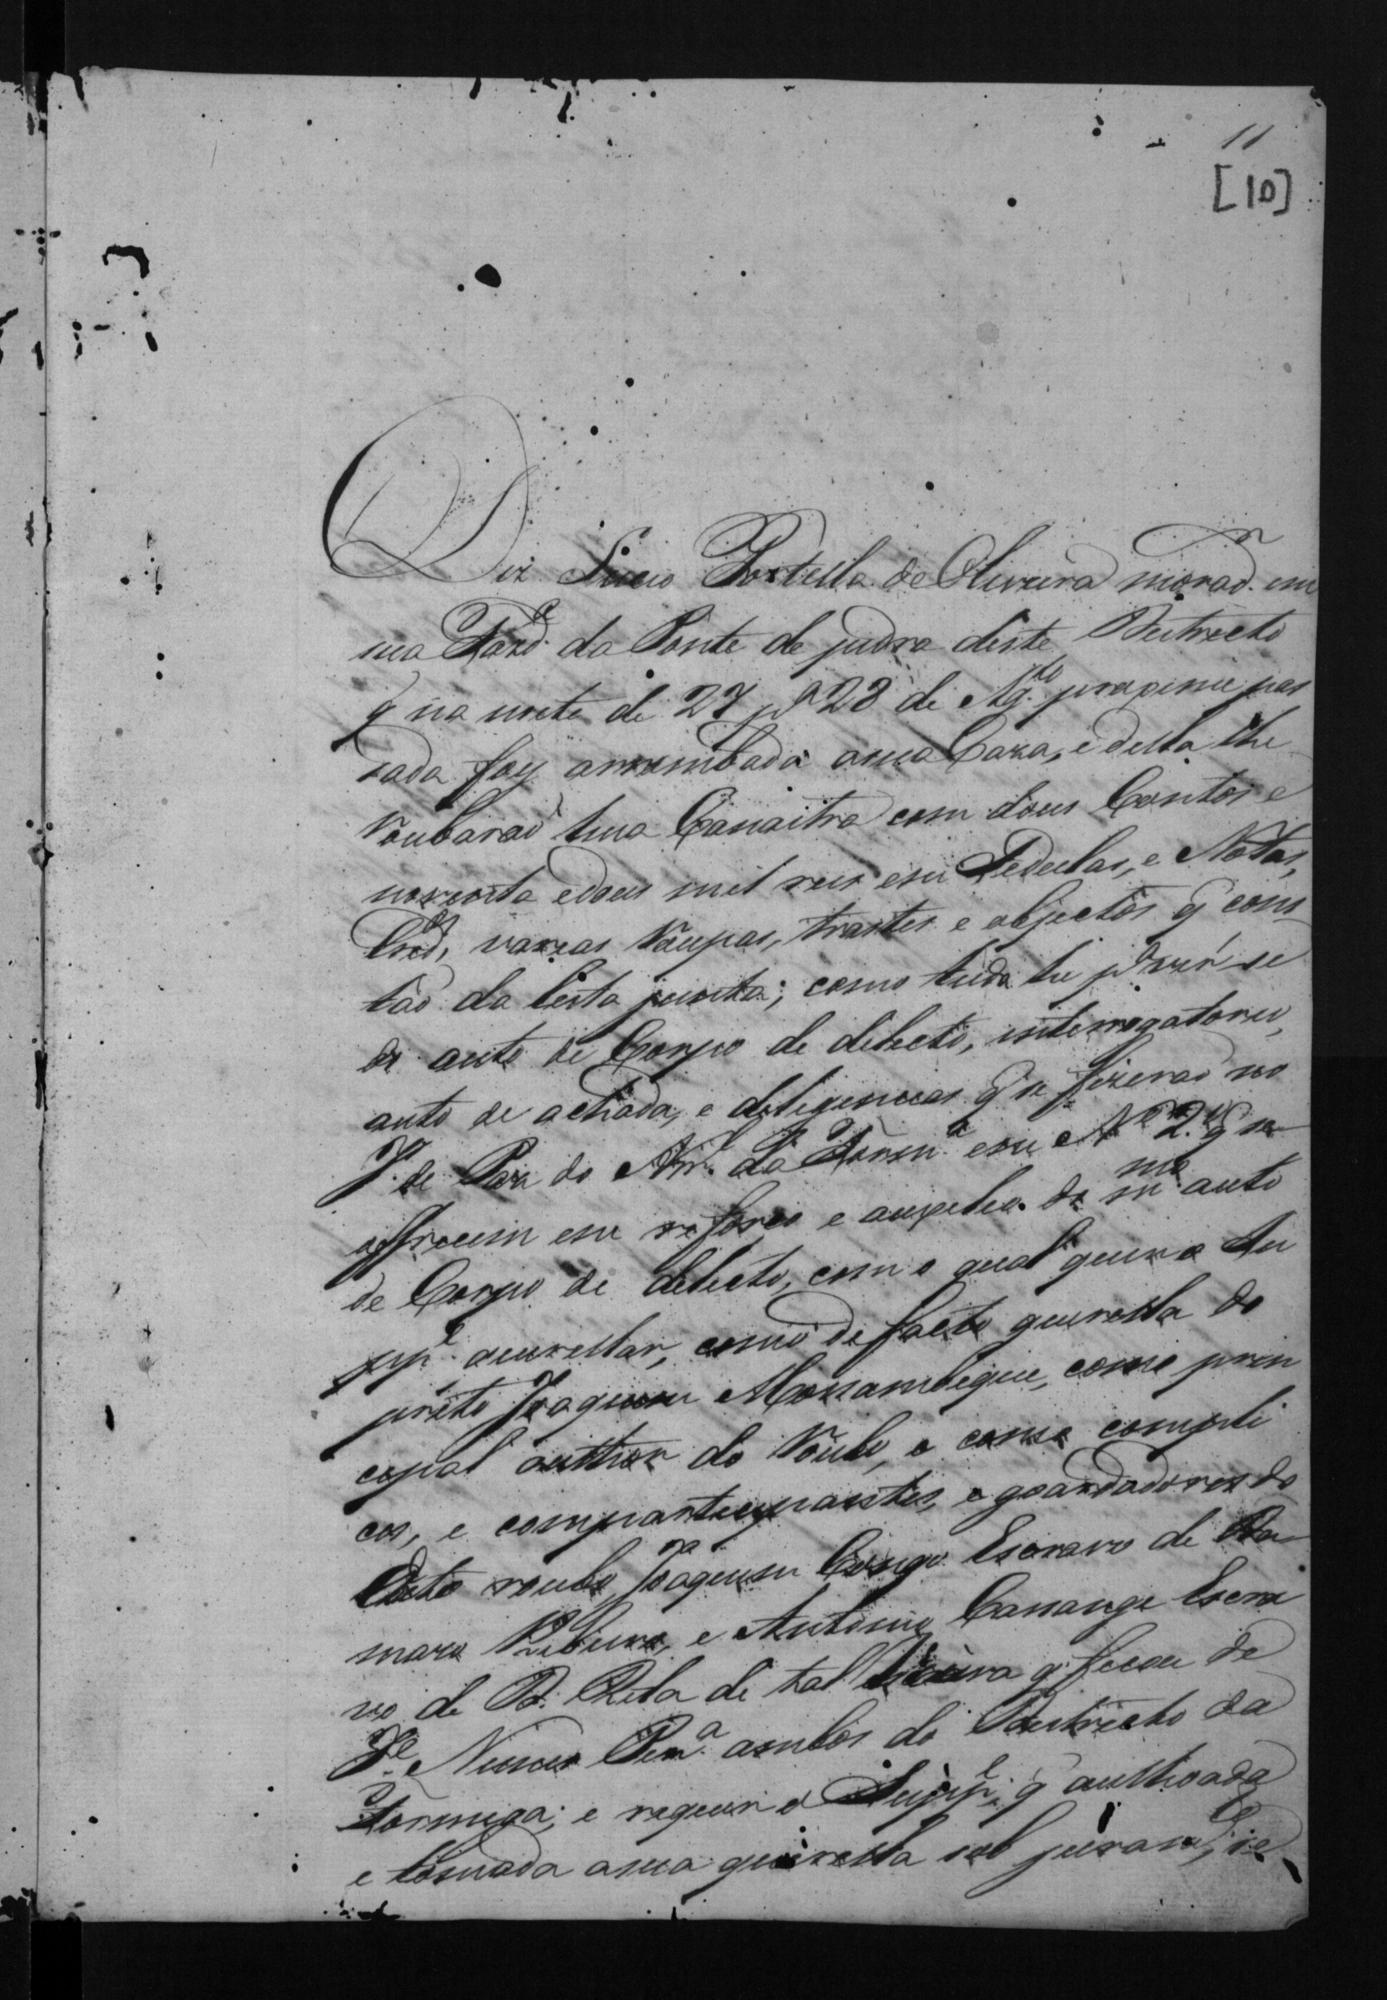 11
[10]
Diz Lucio Portella de Oliveira morad.r em
sua Fazd.a da Ponte de pedra deste Destricto
q̃ na noite de 27 p.a 28 de Ag.to proximo pas
sada foy arrombada a sua Caza, e della lhe
roubaraõ hua Canastra com dous Contos e
noventa e dous mil reis em Sedulas, e Notas,
varias roupas, trastes e objectos q̃ cons
taõ da lista junta; como tudo he
do auto de Corpo de delicto, interrogatorio,
auto de achada, e deligencias q̃ se fizeraõ no
J.o de Paz do Arr.al da Formig.a em N.o 2.o q̃
offrecem em reforço e do m.mo auto
de Corpo de delicto, com o qual quer o Su
pp.e querellar, como de facto querella do
preto Joaquim Mossambique, como prin
cipal author do roubo, e como compli
ces, e comparticipantes, e goardadores do
dito roubo Joaquim Congo Escravo de
maro Ribeiro, e Antonio Cassange Escra
vo de D. Rita de tal q̃ ficou de
J.e Nunes Per.a ambos do Destricto da
Formiga; e requer o Supp.e q̃ authoada
e tomada a sua querella sob juram.to, se